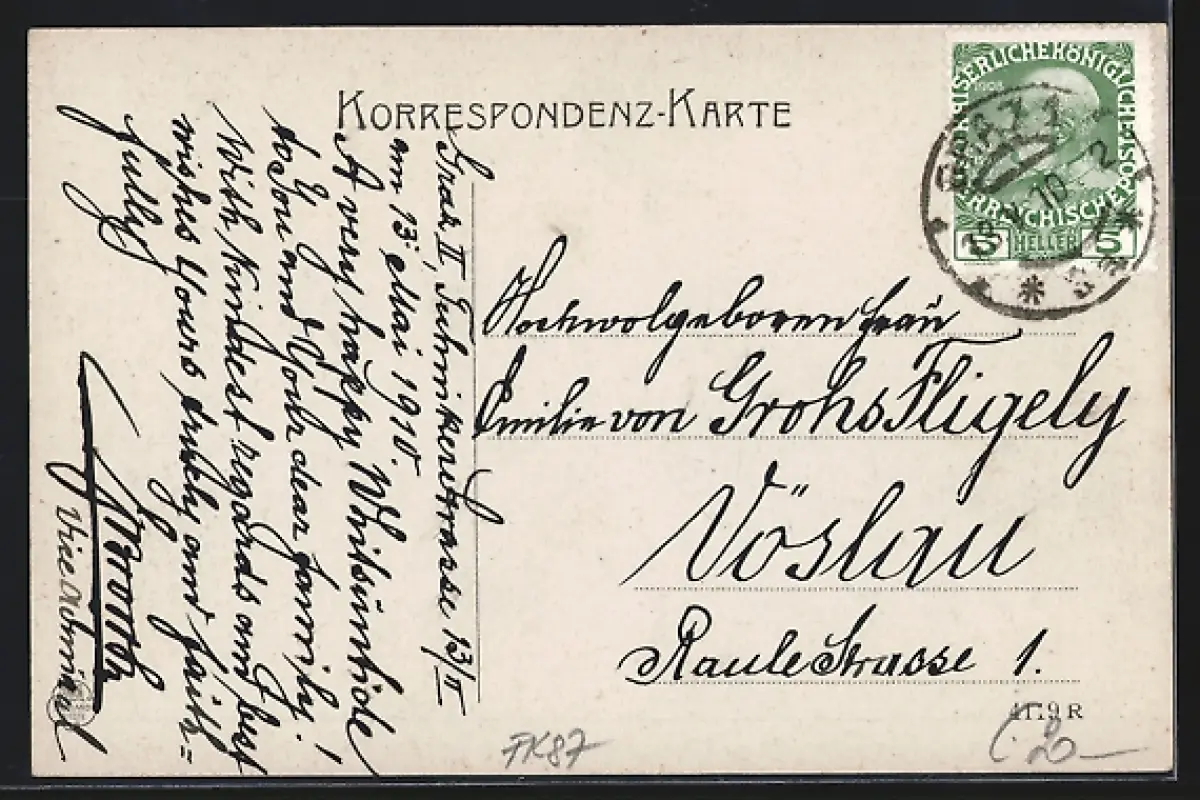 KORRESPONDENZ-KARTE
KAISERLICHE KÖNIGLICHE
ÖSTERREICHISCHE POST
1908
5 HELLER 5
GRAZ 1
13. V. 10
Graz II,
13/II
am 13. Mai 1910.
A very happy Whitsuntide
to You and Your dear family!
With kindest regards and best
wishes Yours truly and faith=
fully
Viceadmiral
Hochwolgeboren Frau
Emilie von Grohs Fligely
Vöslau
Raule Strasse 1.
4179 R
FK87